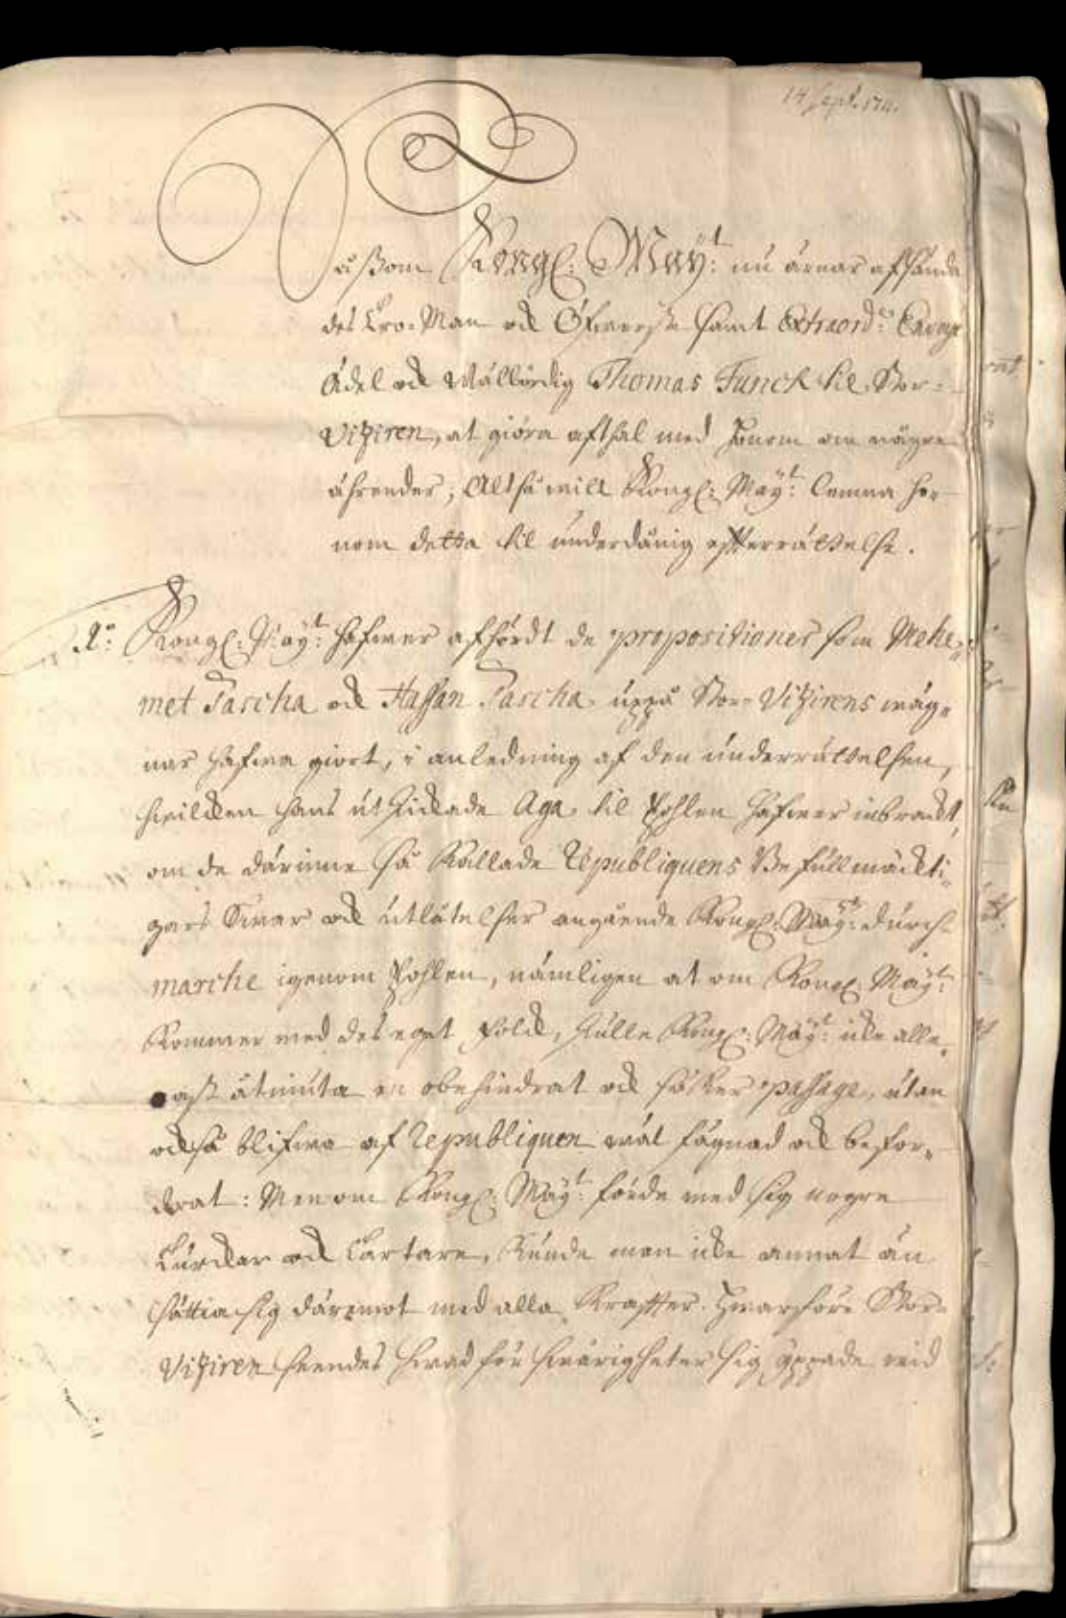 14 Sept. 1711.
Såssom Kongl: Maÿ:t nu ärnar afsända
des Tro-Man och Öfwerste samt Extraord:s Envoyé
Ädel och Wälbördig Thomas Funck til Stor-
Viziren, at giöra afthal med honom om någre
ährender; Altså will Kongl: Maÿ:t lemna ho-
nom detta til underdånig efterrättelse.
1:o Kongl: Maÿ:t hafwer afhördt de propositioner som Mehe-
met Pascha och Hassan Pascha uppå Stor-Vizirens wäg-
nar hafwa giort, i anledning af den underrättelsen,
hwilcken hans utskickade Aga til Pohlen hafwer inbracht,
om de därinne så kallade Republiquens Befullmächti-
gars Swar och utlåtelser angående Kongl: Maÿ:tz durch-
marche igenom Pohlen, nämligen at om Kongl: Maÿ:t
kommer med des eget folck, skulle Kongl: Maÿ:t icke alle-
nast åtniuta en obehindrat och säker passage, utan
också blifwa af Republiquen wäl fägnad och befor-
drat: Men om Kongl: Maÿ:t förde med sig nogre
Turckar och Tartare, kunde man icke annat än
sättia sig däremot med alla kraffter. Hwarföre Stor-
Viziren seendes hwad för swårigheter sig yppade wid